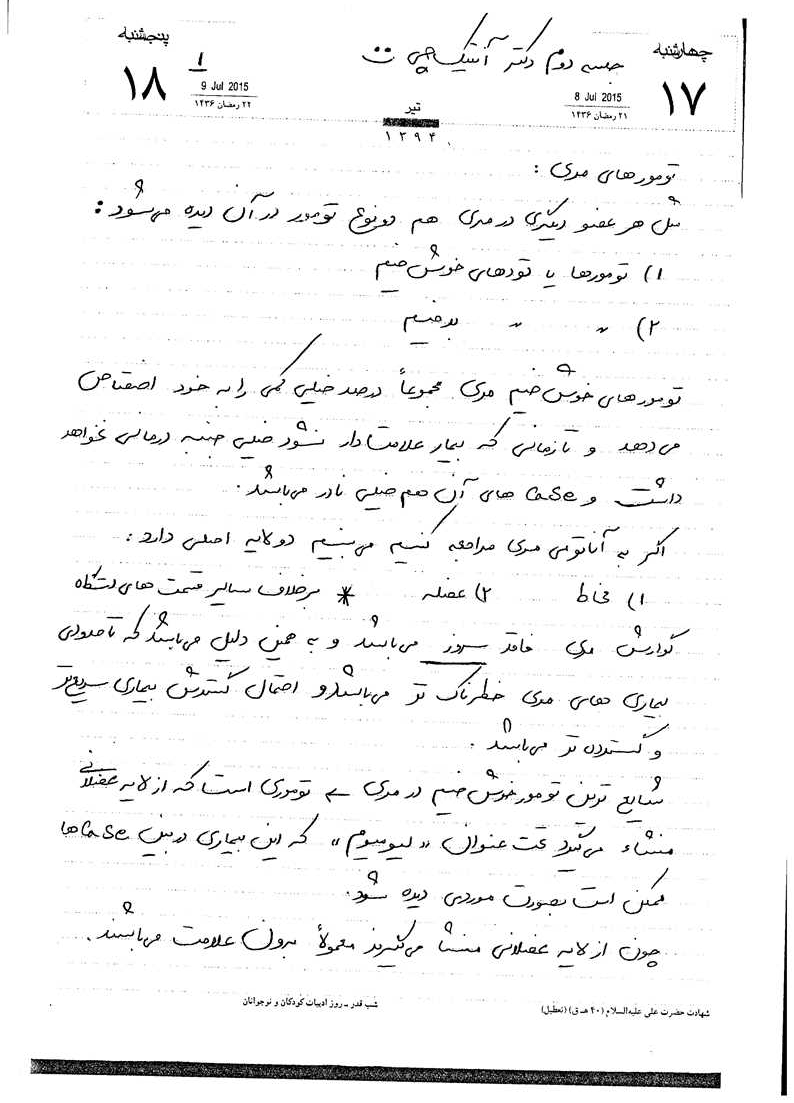 چهارشنبه
۱۷
8 Jul 2015
۲۱ رمضان ۱۴۳۶
جلسه دوم دکتر آنتیک‌چی
تیر
۱۳۹۴
پنجشنبه
۱۸
۱
9 Jul 2015
۲۲ رمضان ۱۴۳۶
تومورهای مری :
مثل هر عضو دیگری در مری هم دو نوع تومور در آن دیده می‌شود :
۱) تومورها یا توده‌های خوش خیم
۲) " " بدخیم
تومورهای خوش خیم مری مجموعاً درصد خیلی کمی را به خود اختصاص
می‌دهد و تا زمانی که بیمار علامت‌دار نشود خیلی جنبه درمانی نخواهد
داشت و Case های آن هم خیلی نادر می‌باشد.
اگر به آناتومی مری مراجعه کنیم می‌بینیم دو لایه اصلی دارد :
۱) مخاط ۲) عضله * برخلاف سایر قسمت های دستگاه
گوارش مری فاقد سروز می‌باشد و به همین دلیل می‌باشد که تا حدودی
بیماری های مری خطرناک تر می‌باشد و احتمال گسترش بیماری سریع‌تر
و گسترده تر می‌باشد.
شایع ترین تومور خوش خیم در مری ← توموری است که از لایه عضلانی
منشاء می‌گیرد تحت عنوان «لیومیوم» که این بیماری در بین Case ها
ممکن است بصورت موردی دیده شود.
چون از لایه عضلانی منشا می‌گیرند معمولاً بدون علامت می‌باشند.
شهادت حضرت علی علیه‌السلام (۴۰ هـ ق) (تعطیل)
شب قدر ـ روز ادبیات کودکان و نوجوانان